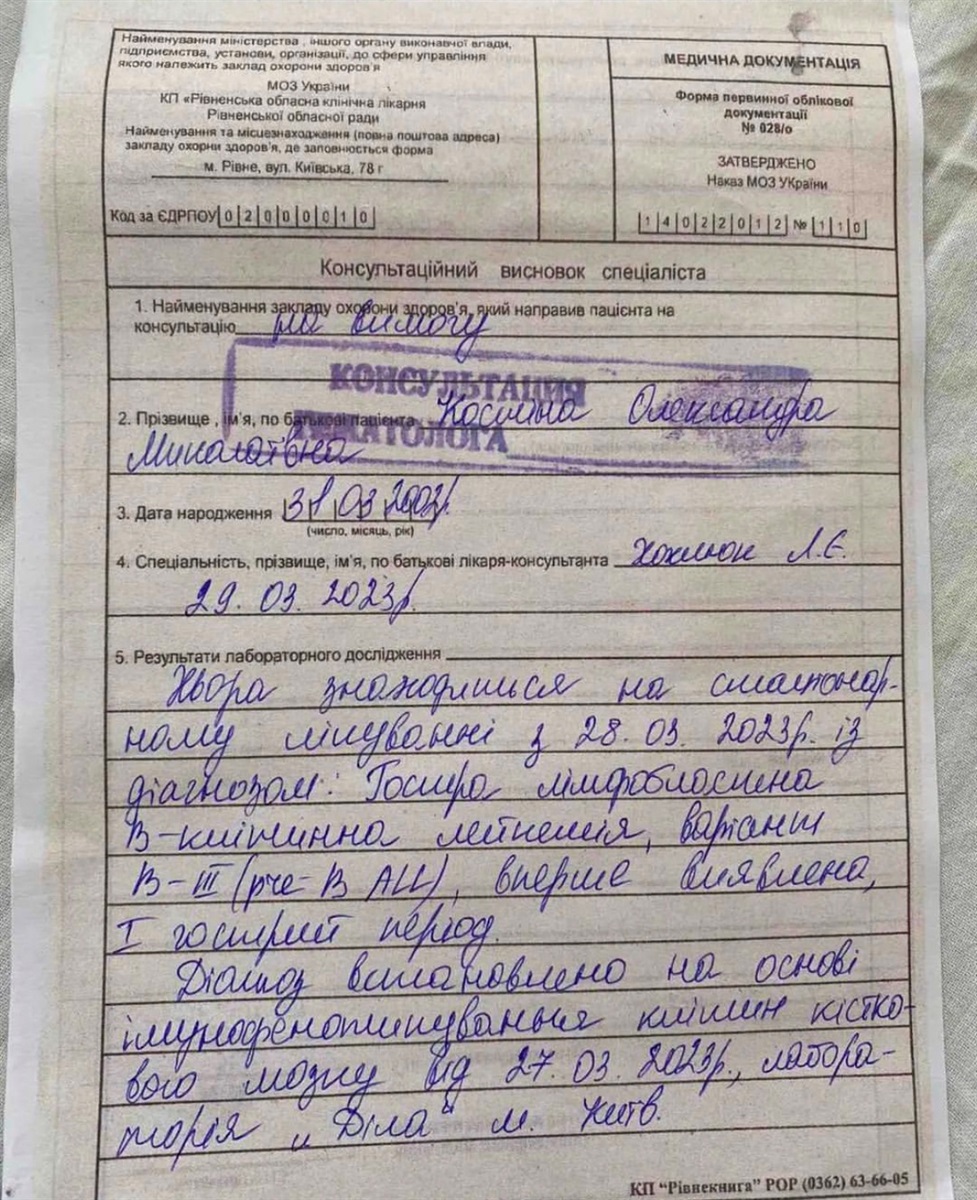 Найменування міністерства , іншого органу виконавчої влади,
підприємства, установи, організації, до сфери управління
якого належить заклад охорони здоров'я
МОЗ України
КП «Рівненська обласна клінічна лікарня
Рівненської обласної ради
Найменування та місцезнаходження (повна поштова адреса)
закладу охорни здоров'я, де заповнюється форма
м. Рівне, вул. Київська, 78 г
Код за ЄДРПОУ 0 2 0 0 0 0 1 0
МЕДИЧНА ДОКУМЕНТАЦІЯ
Форма первинної облікової
документації
№ 028/о
ЗАТВЕРДЖЕНО
Наказ МОЗ УКраїни
1 4 0 2 2 0 1 2 № 1 1 0
Консультаційний висновок спеціаліста
1. Найменування закладу охорони здоров'я, який направив пацієнта на
консультацію на вимогу
КОНСУЛЬТАЦИЯ
ГЕМАТОЛОГА
2. Прізвище , ім'я, по батькові пацієнта Олександра
3. Дата народження 31 03 2002р.
(число, місяць, рік)
4. Спеціальність, прізвище, ім'я, по батькові лікаря-консультанта Л.Є.
29. 03. 2023р.
5. Результати лабораторного дослідження
Хвора знаходиться на стаціонар-
ному лікуванні з 28. 03. 2023р. із
діагнозом: Гостра лімфобластна
В-клітинна лейкемія, варіант
В-III (pre-B ALL), вперше виявлена,
I гострий період.
Діагноз встановлено на основі
імунофенотипування клітин кістко-
вого мозку від 27. 03. 2023р., лабора-
торія „Діла" м. Київ.
КП "Рівнекнига" РОР (0362) 63-66-05